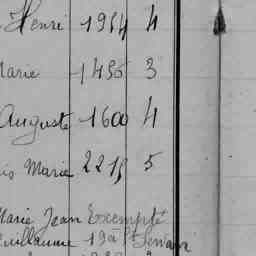 Henri 1954 4
Marie 1456 3
Auguste 1600 4
Marie 2215 5
Marie Jean Exempté
Guillaume 19 à St Servan